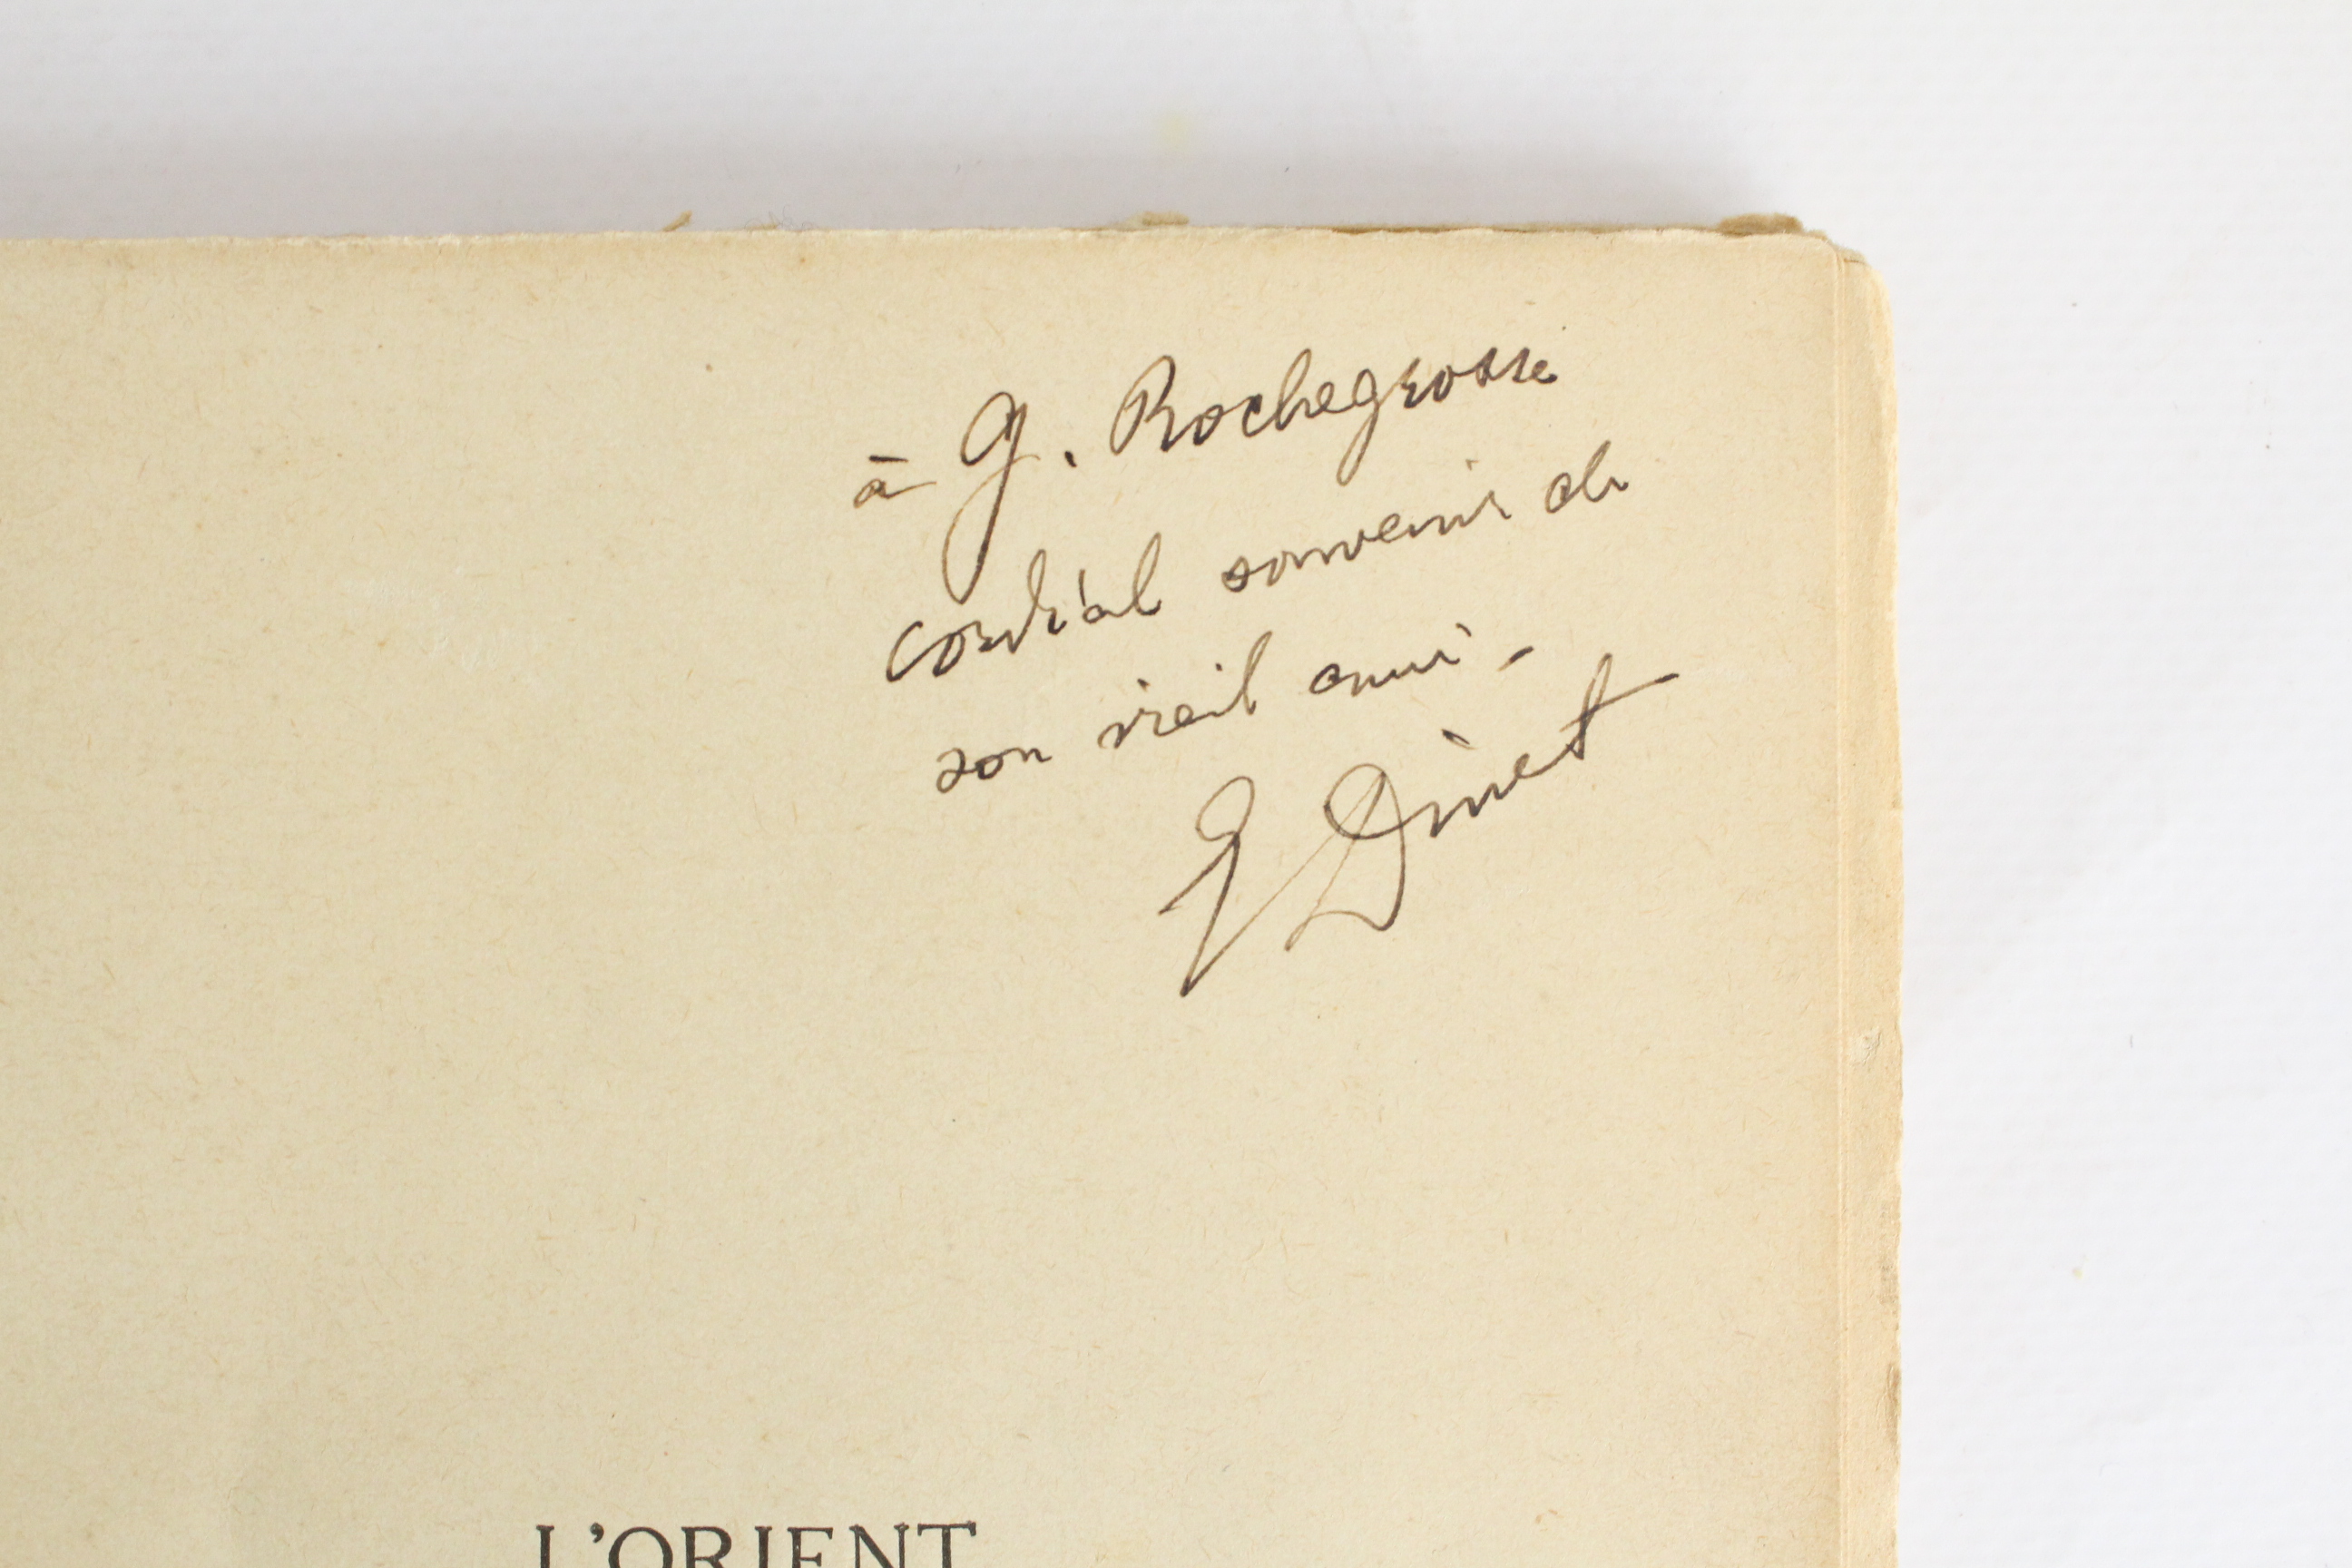 à G. Rochegrosse
cordial souvenir de
son vieil ami -
E Dinet
L'ORIENT